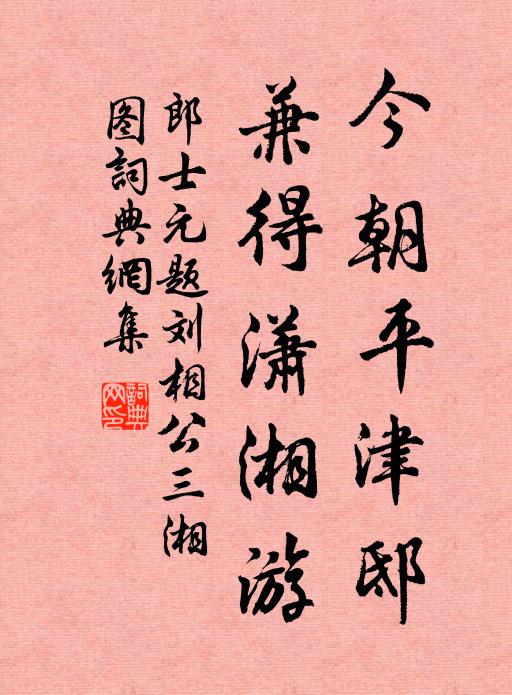 今朝平津邸
兼得潇湘游
郎士元题刘相公三湘
图詞典網集
詞典
网印